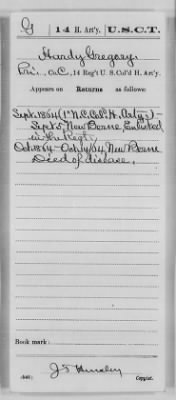 G | 14 H. Art'y. | U.S.C.T.
Hardy Gregory
Pvt., Co. C, 14 Reg't U.S. Col'd H. Art'y.
Appears on Returns as follows:
Sept. 1864 (1st N.C. Cold. H. Arty.) –
Sept 5 New Berne Enlisted
in the Regt.
Oct. 1864 – Oct 19/64 New Berne
Died of disease.
Book mark:
(546)
Copyist.